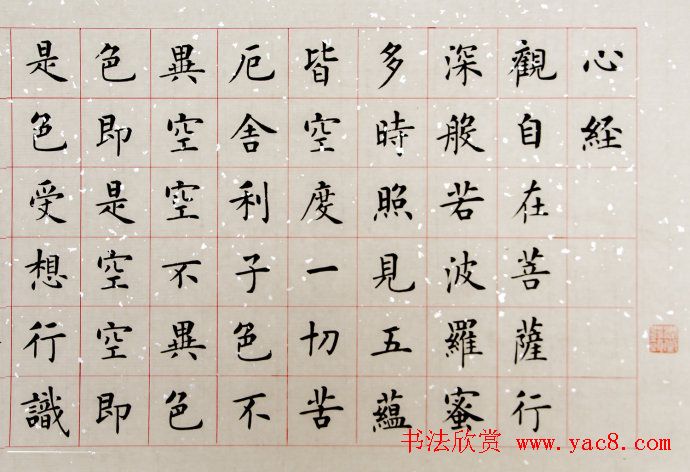 心経
觀自在菩薩行
深般若波羅蜜
多時照見五蘊
皆空度一切苦
厄舍利子色不
異空空不異色
色即是空空即
是色受想行識
书法欣赏 www.yac8.com